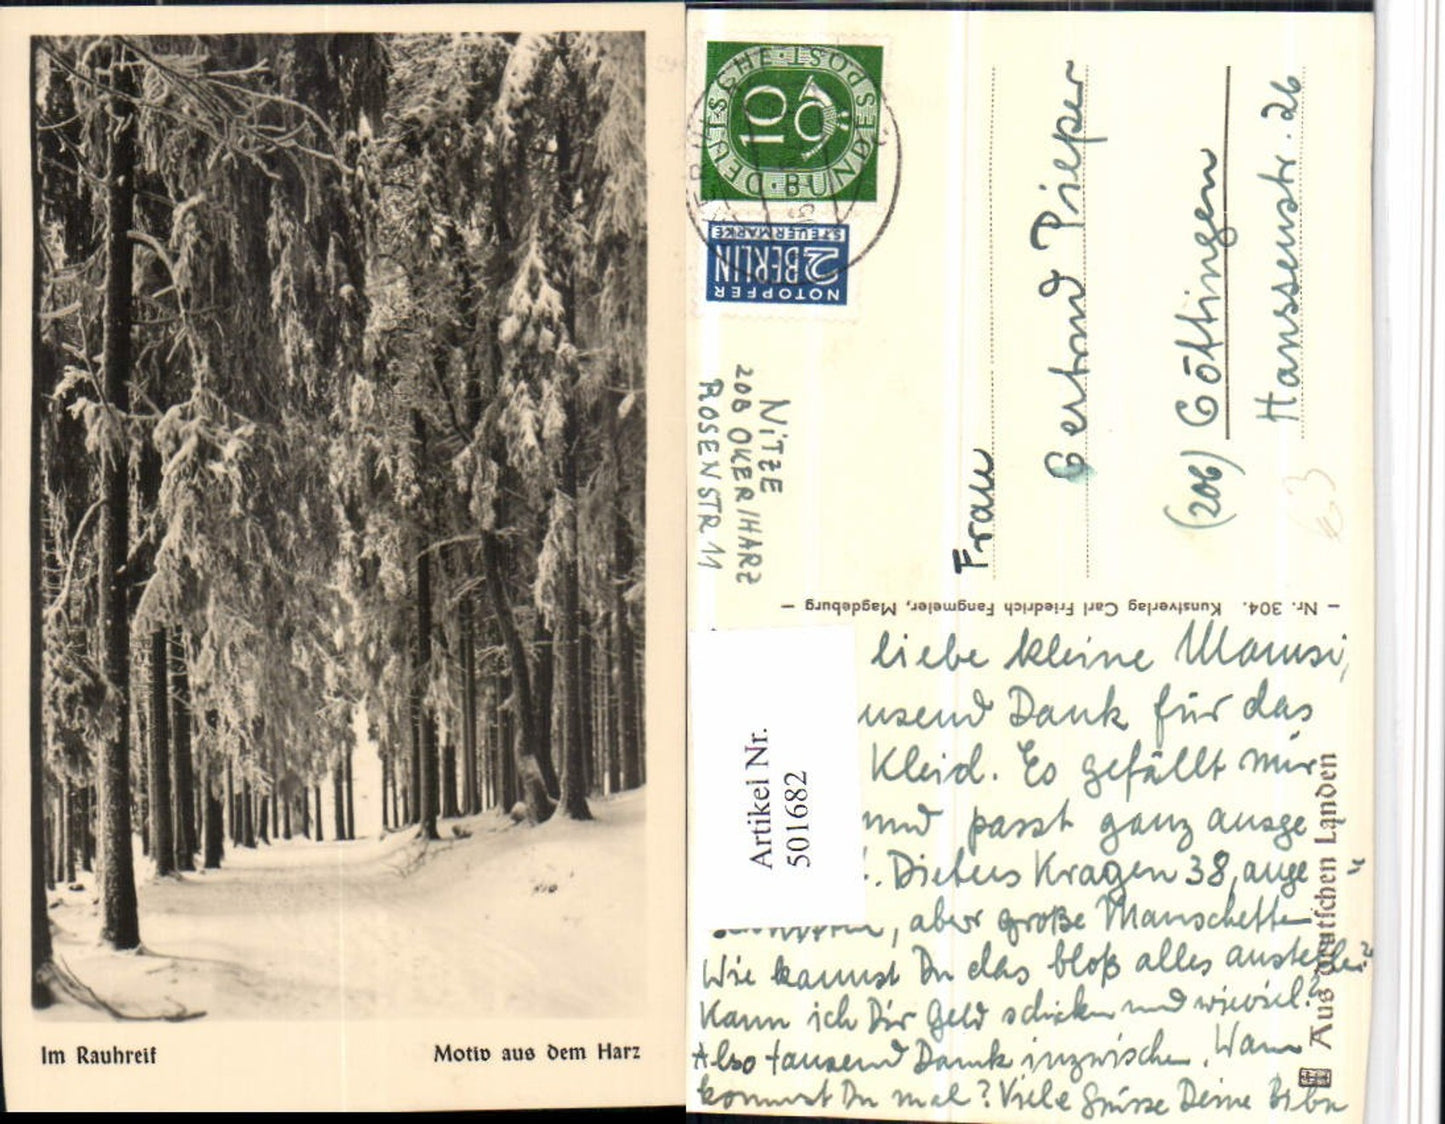 Im Rauhreif
Motiv aus dem Harz
DEUTSCHE · POST
10
DEUTSCHE BUNDESPOST
NOTOPFER
2 BERLIN
STEUERMARKE
NITZE
20B OKER/HARZ
ROSENSTR 11
Frau
Gertrud Pieper
(20b) Göttingen
Hanssenstr. 26
– Nr. 304. Kunstverlag Carl Friedrich Fangmeier, Magdeburg –
Aus deutschen Landen
Artikel Nr.
501682
liebe kleine Mamsi,
usend Dank für das
Kleid. Es gefällt mir
und passt ganz ausge
. Dieters Kragen 38, ange
, aber große Manschetten
Wie kannst Du das bloß alles anstellen?
Kann ich Dir Geld schicken und wieviel?
Also tausend Dank inzwischen. Wann
kommst Du mal? Viele Grüsse Deine